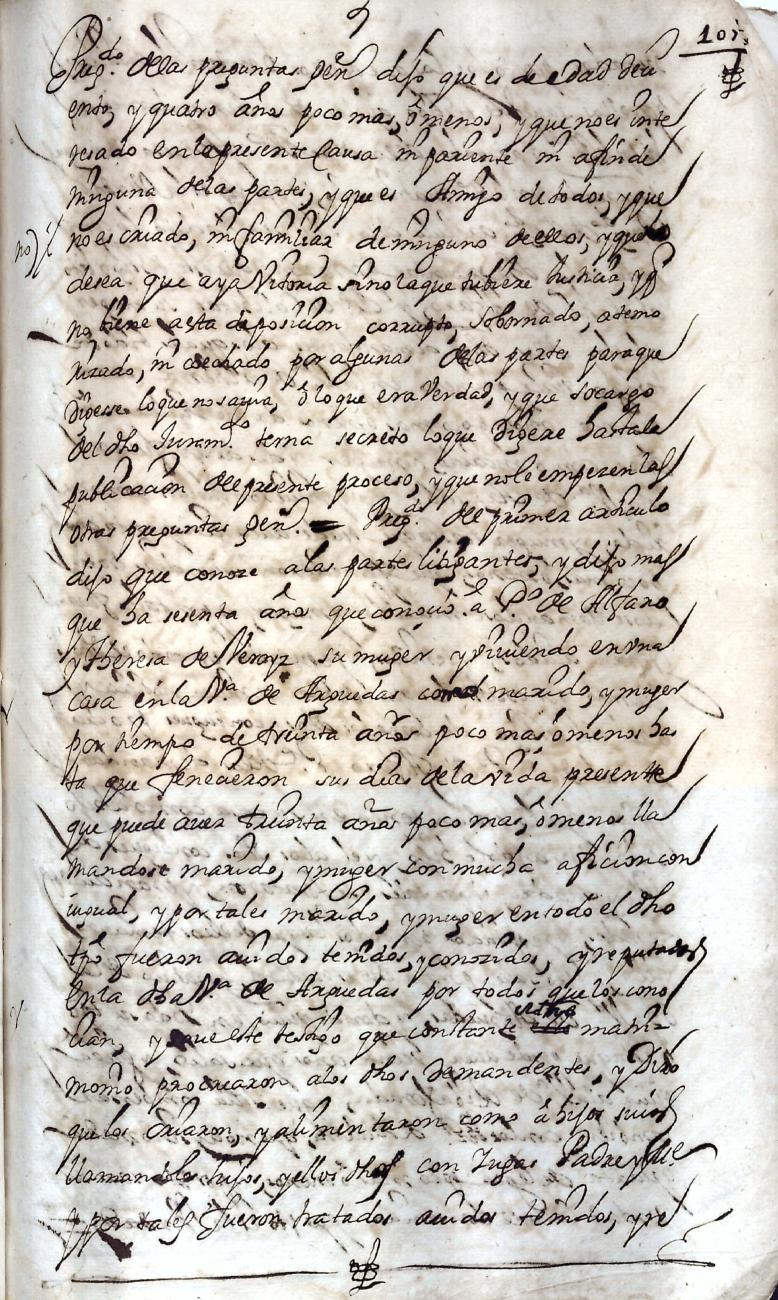 101
Preg.do delas preguntas Gen.s dijo que es de edad de ci
ento, y quatro años poco mas, ô menos, y que no es inte
resado en la presente Causa ni pariente ni afin de
ninguna delas partes, y que es Amigo de todos, y que
no es criado, ni familiar de ninguno dellos, y que
desea que aya Vitoria sino la que tubiere Justicia, y q
no, tiene a esta deposicion corrupto, sobornado, atemo
rizado, ni cochado por algunas delas partes para que
Digesse lo que no savia, ô lo que era Verdad, y que socargo
del dho Juram.to terna secreto lo que Digere hasta la
publicacion del presente proceso, y que no le empezen las
otras preguntas Gen.s = Preg.do del primer articulo
dijo que conoze a las partes litigantes, y dijo mas
que ha sesenta años que conoció â P.o de Alfaro
y Theresa de Verayz su muger y viviendo en una
casa en la V.a de Arguedas como marido, y muger
por tiempo de treinta años poco mas ô menos has
ta que fenecieron sus dias de la vida presente
que puede aver treinta años poco mas, ô menos lla
mandose marido, y muger con mucha aficion con
iugual, y por tales marido, y muger en todo el dho
tpo fueron avidos tenidos, y conozidos, y reputados
en la dha V.a de Arguedas por todos que los cono
cian, y save este testigo que constante matri=
monio procrearon a los dhos Demandentes, y Dixo
que los criaron, y alimentaron como â hijos suios
llamandoles hijos, y ellos dhos con Jugas Padre y M.e
y por tales fueron tratados avidos tenidos, y re